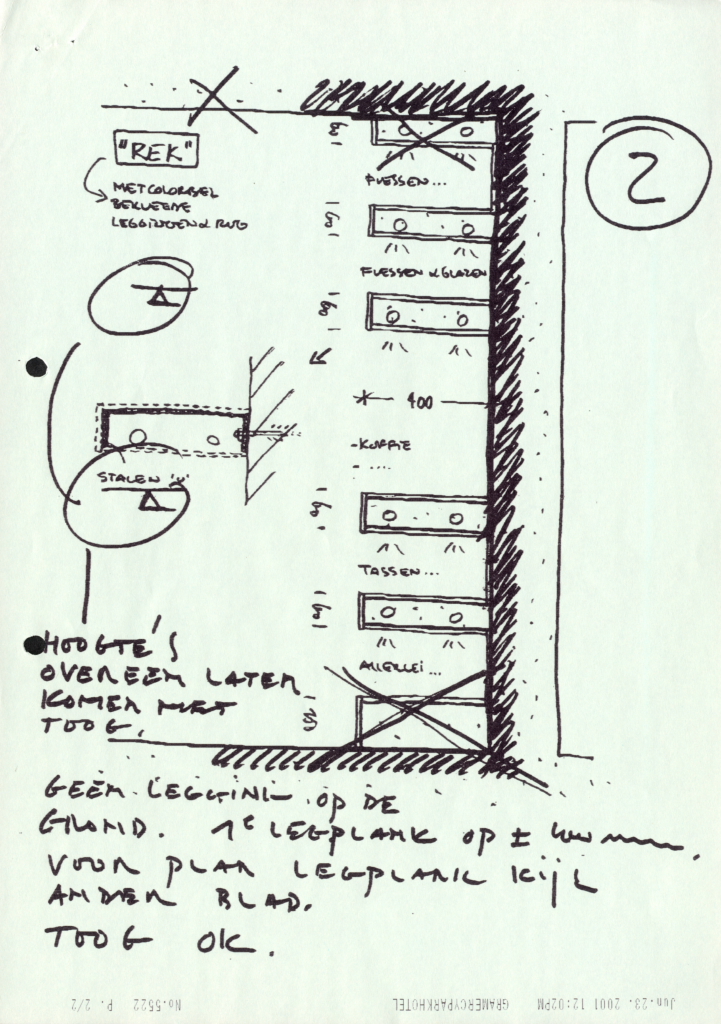 "REK"
MET COLORBEL
BEKLEEDE
LEGGINGEN & RUG
2
80
FLESSEN...
80
FLESSEN & GLAZEN
80
400
-KOFFIE
- ....
STALEN 'U'
80
TASSEN...
80
ALLERLEI...
HOOGTE'S
OVEREEN LATEN
KOMEN MET
TOOG.
GEEN LEGGING OP DE
GROND. 1e LEGPLANK OP ±
VOOR PLAN LEGPLANK KIJK
ANDER BLAD.
TOOG OK.
Jun.23. 2001 12:02PM GRAMERCYPARKHOTEL No.5522 P. 2/2